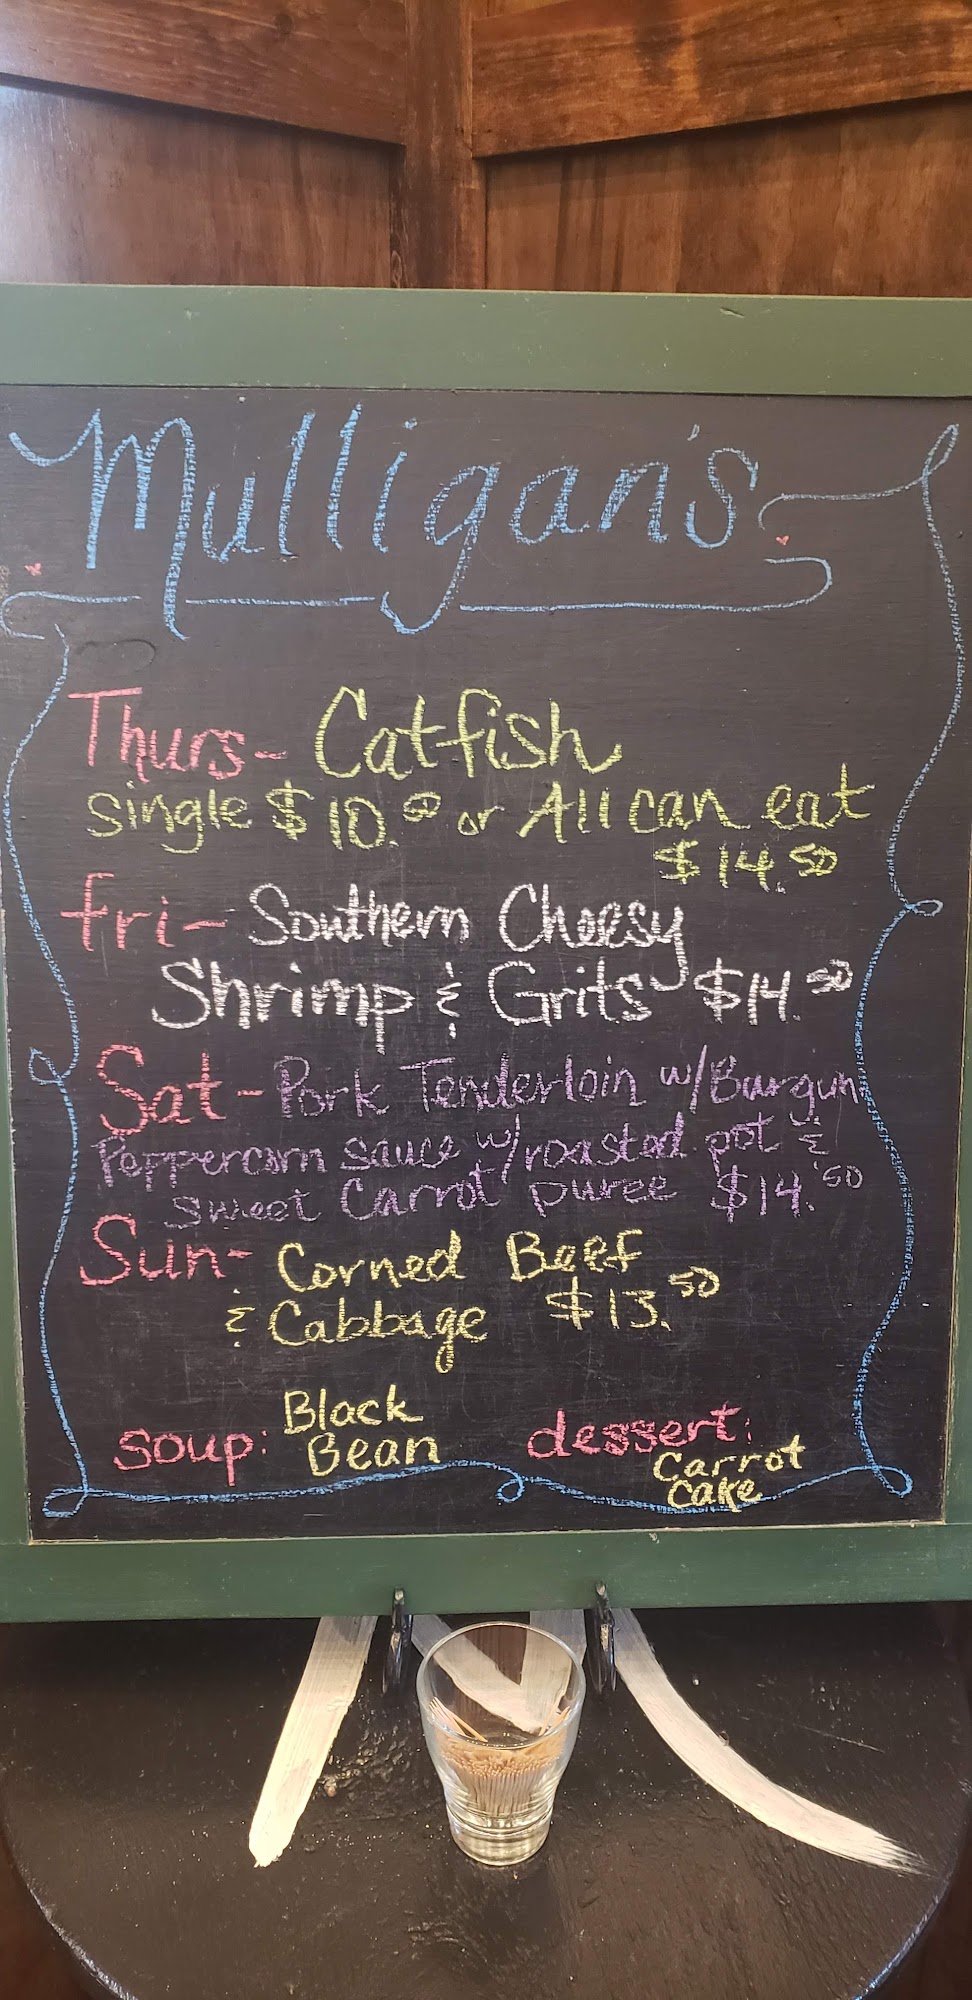 Mulligan's
Thurs- Catfish
Single $10.50 or All can eat
$14.50
Fri- Southern Cheesy
Shrimp & Grits $14.50
Sat- Pork Tenderloin w/Burgun
Peppercorn sauce w/roasted pot &
sweet Carrot puree $14.50
Sun- Corned Beef
& Cabbage $13.50
soup: Black Bean
dessert: Carrot Cake